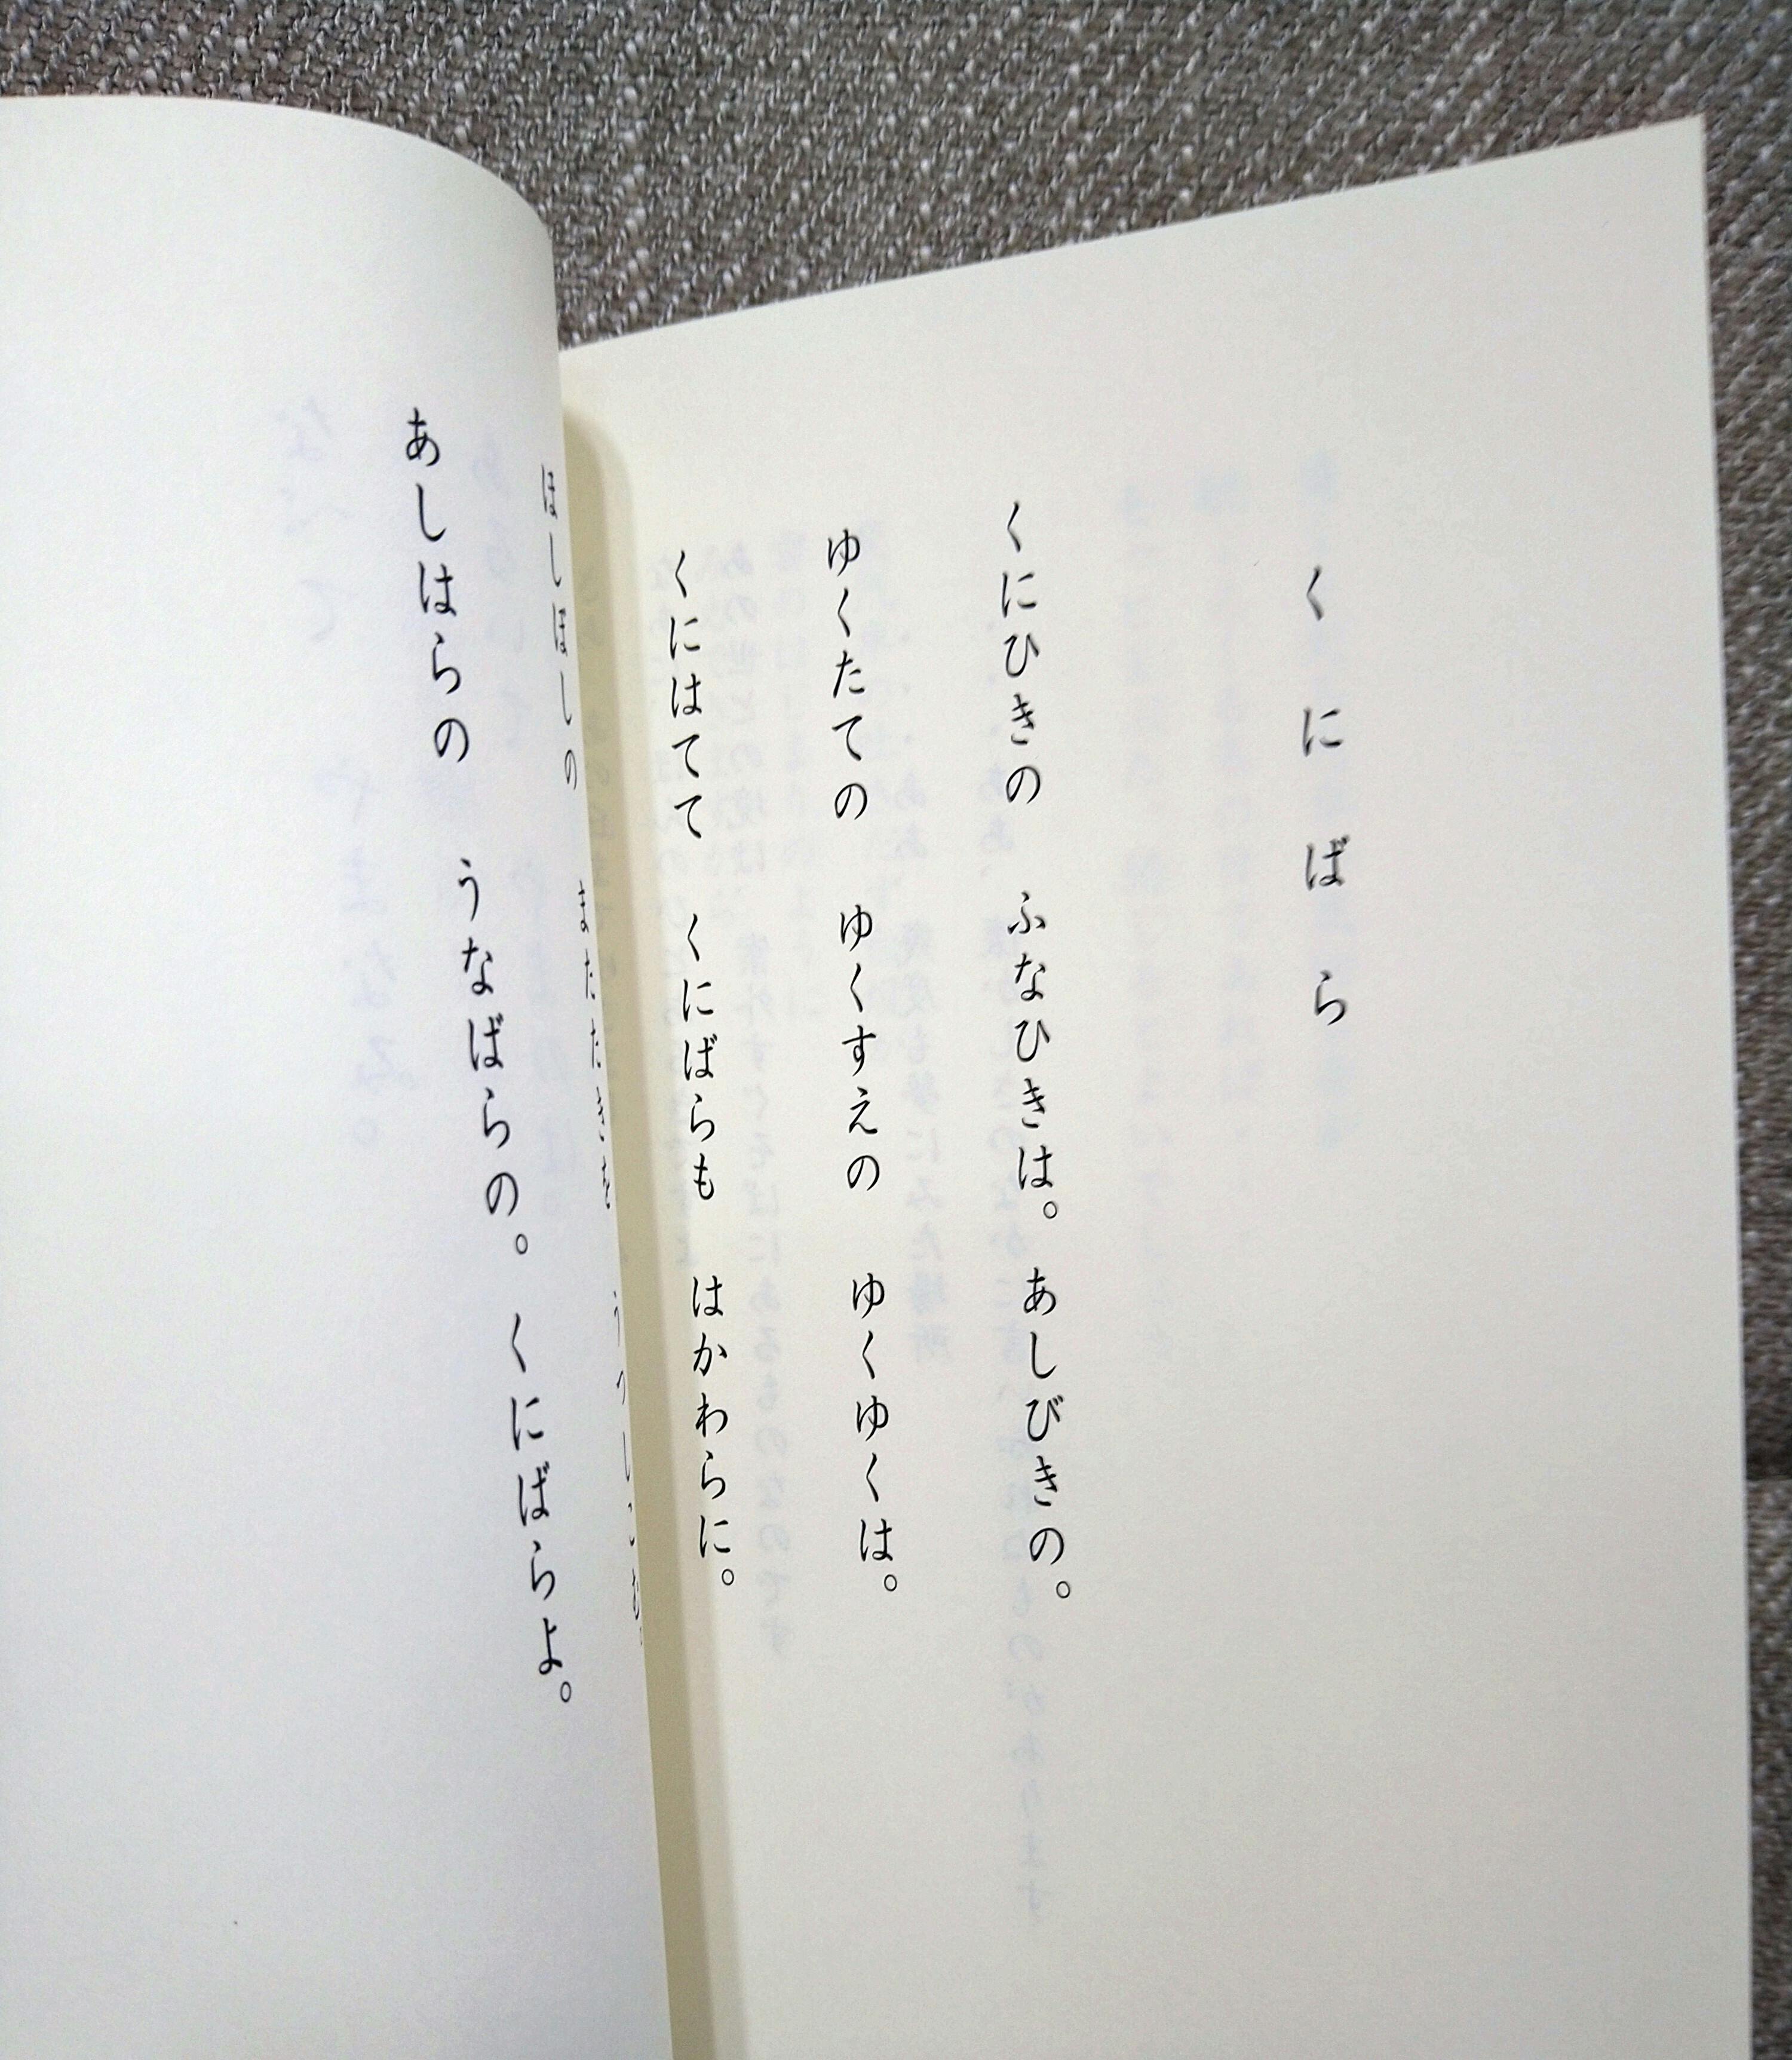 くにばら
くにひきの　ふなひきは。あしびきの。
ゆくたての　ゆくすえの　ゆくゆくは。
くにはてて　くにばらも　はかわらに。
ほしぼしの　またたきを　うつしこむ。
あしはらの　うなばらの。くにばらよ。